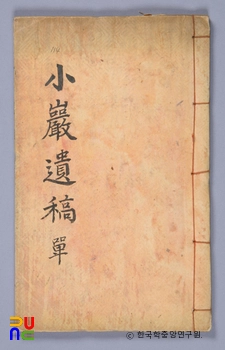 小巖遺稿 單
ⓒ 한국학중앙연구원